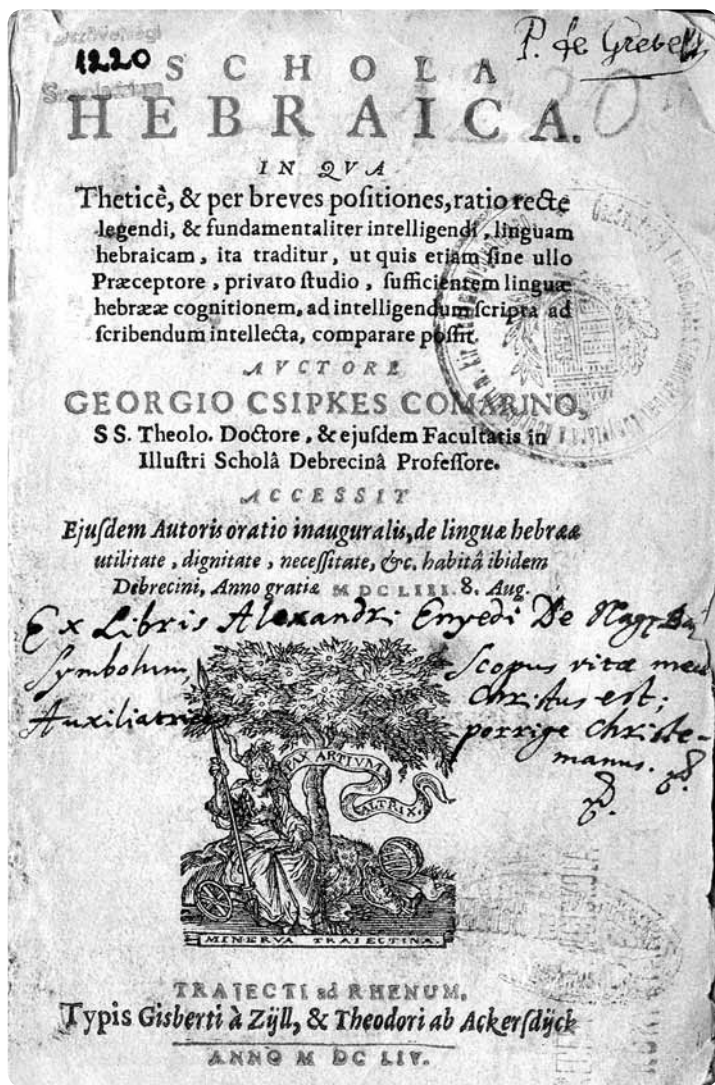 P. de
1220
SCHOLA
HEBRAICA.
IN QVA
Theticè, & per breves poſitiones, ratio rectè
legendi, & fundamentaliter intelligendi, linguam
hebraicam, ita traditur, ut quis etiam ſine ullo
Præceptore, privato ſtudio, ſufficientem linguæ
hebrææ cognitionem, ad intelligendum ſcripta ad
ſcribendum intellecta, comparare poſſit.
AVCTORE
GEORGIO CSIPKES COMARINO,
SS. Theolo. Doctore, & ejuſdem Facultatis in
Illuſtri Scholâ Debrecinâ Profeſſore.
ACCESSIT
Ejuſdem Autoris oratio inauguralis, de linguæ hebrææ
utilitate, dignitate, neceſſitate, &c. habitâ ibidem
Debrecini, Anno gratiæ MDCLIII. 8. Aug.
Ex Libris Alexandri Enyedi De Nagy
Symbolum, Scopus vitæ meæ
Chriſtus est;
Auxiliatrices porrige Chriſte
manus.
PAX ARTIVM
ALTRIX.
MINERVA TRAIECTINA.
TRAJECTI ad RHENUM,
Typis Gisberti à Zÿll, & Theodori ab Ackerſdÿck
ANNO M DC LIV.